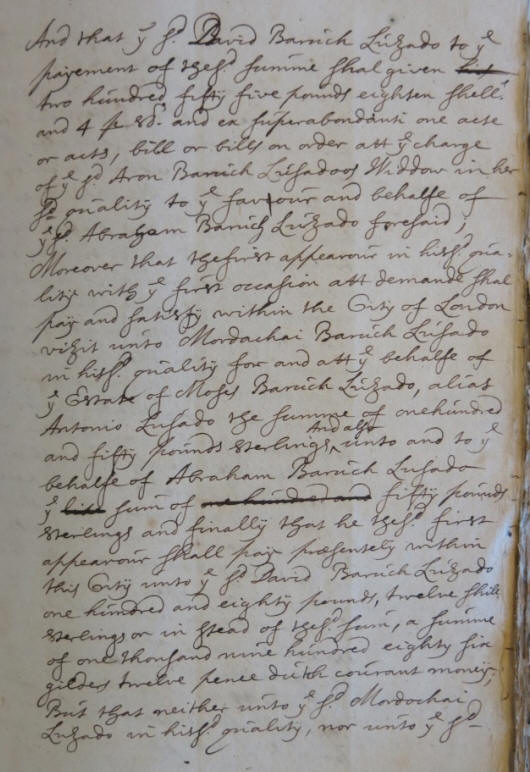 And that yͤ sᵈ. David Baruch Luzado to yͤ
payement of the sᵈ. summe shal given
two hundred fifty five pounds eighteen shell.
and 4 pe. St. and ex superabondanti one acte
or acts, bill or bills on order att yͤ charge
of yͤ sᵈ. Aron Baruch Lusadoos Widdow in her
sᵈ. quality to yͤ favour and behalfe of
yͤ sᵈ. Abraham Baruch Luzado foresaid;
Moreover that the first appearour in his sᵈ. qua-
lity with yͤ first occasion att demande shal
pay and satisfy within the City of London
vizit unto Mordachai Baruch Lusado
in his sᵈ. quality for and att yͤ behalfe of
yͤ Estate of Moses Baruch Luzado, alias
Antonio Lusado the summe of onehundred
and fifty pounds sterlings, And also unto and to yͤ
behalfe of Abraham Baruch Lusado
yͤ like sum of one hundred and fifty pounds
sterlings and finally that he the sᵈ first
appearour shall pay presentely within
this City unto yͤ sᵈ David Baruch Luzado
one hundred and eighty pounds, twelve shill.
sterlings or in stead of the sᵈ sum, a summe
of one thousand nine hundred eighty six
gilders twelve pence dutch courant money;
But that neither unto yͤ sᵈ Mordochai
Luzado in his sᵈ. quality, nor unto yͤ sᵈ